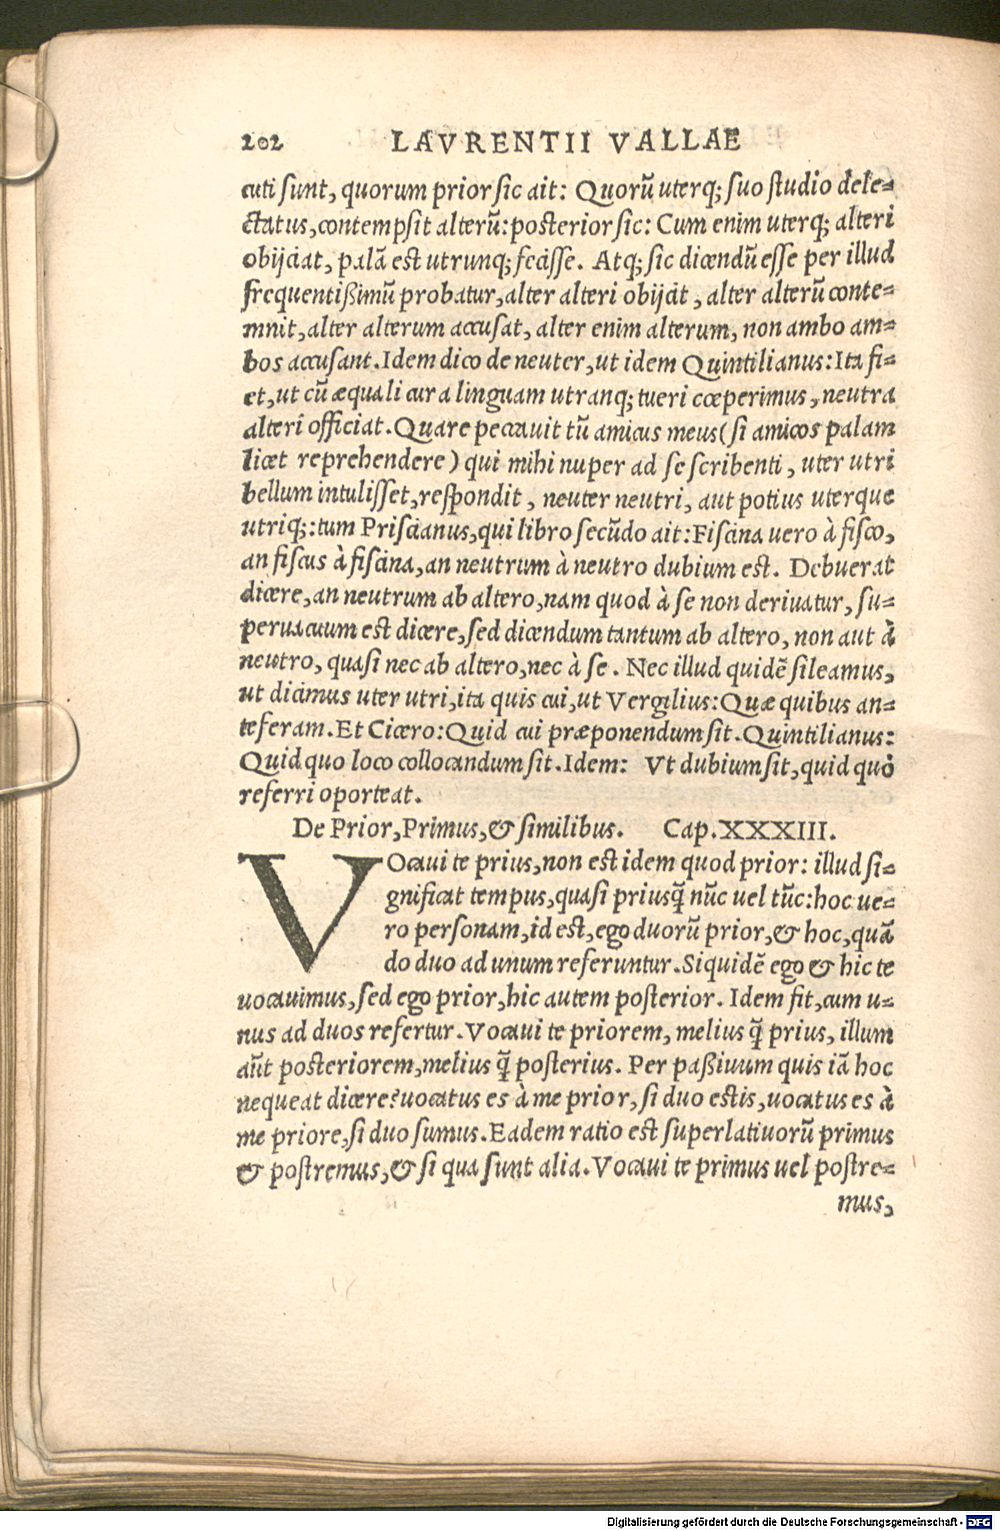 202 LAVRENTII VALLAE
cuti sunt, quorum prior sic ait: Quorũ uterq; suo studio dele-
ctatus, contempsit alterũ: posterior sic: Cum enim uterq; alteri
obijciat, palã est utrunq; fecisse. Atq; sic dicendũ esse per illud
frequentißimũ probatur, alter alteri obijcit, alter alterũ conte-
mnit, alter alterum accusat, alter enim alterum, non ambo am-
bos accusant. Idem dico de neuter, ut idem Quintilianus: Ita fi-
et, ut cũ æquali cura linguam utranq; tueri cœperimus, neutra
alteri officiat. Quare peccauit tũ amicus meus (si amicos palam
licet reprehendere) qui mihi nuper ad se scribenti, uter utri
bellum intulisset, respondit, neuter neutri, aut potius uterque
utriq;: tum Priscianus, qui libro secũdo ait: Fiscina uero à fisco,
an fiscus à fiscina, an neutrum à neutro dubium est. Debuerat
dicere, an neutrum ab altero, nam quod à se non deriuatur, su-
peruacuum est dicere, sed dicendum tantum ab altero, non aut à
neutro, quasi nec ab altero, nec à se. Nec illud quidẽ sileamus,
ut dicimus uter utri, ita quis cui, ut Vergilius: Quæ quibus an-
teferam. Et Cicero: Quid cui præponendum sit. Quintilianus:
Quid quo loco collocandum sit. Idem: Vt dubium sit, quid quò
referri oporteat.
De Prior, Primus, & similibus. Cap. XXXIII.
VOcaui te prius, non est idem quod prior: illud si-
gnificat tempus, quasi priusq̃ nũc uel tũc: hoc ue-
ro personam, id est, ego duorũ prior, & hoc, quã
do duo ad unum referuntur. Siquidẽ ego & hic te
uocauimus, sed ego prior, hic autem posterior. Idem fit, cum u-
nus ad duos refertur. Vocaui te priorem, melius q̃ prius, illum
aũt posteriorem, melius q̃ posterius. Per paßiuum quis iã hoc
nequeat dicere? uocatus es à me prior, si duo estis, uocatus es à
me priore, si duo sumus. Eadem ratio est superlatiuorũ primus
& postremus, & si qua sunt alia. Vocaui te primus uel postre-
mus,
Digitalisierung gefördert durch die Deutsche Forschungsgemeinschaft - DFG